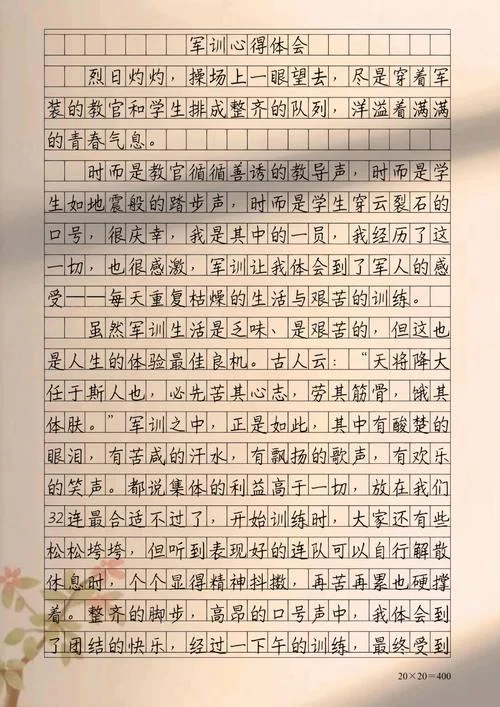 军训心得体会
烈日灼灼，操场上一眼望去，尽是穿着军
装的教官和学生排成整齐的队列，洋溢着满满
的青春气息。
时而是教官循循善诱的教导声，时而是学
生如地震般的踏步声，时而是学生穿云裂石的
口号，很庆幸，我是其中的一员，我经历了这
一切，也很感激，军训让我体会到了军人的感
受——每天重复枯燥的生活与艰苦的训练。
虽然军训生活是乏味、是艰苦的，但这也
是人生的体验最佳良机。古人云：“天将降大
任于斯人也，必先苦其心志，劳其筋骨，饿其
体肤。”军训之中，正是如此，其中有酸楚的
眼泪，有苦咸的汗水，有飘扬的歌声，有欢乐
的笑声。都说集体的利益高于一切，放在我们
32连最合适不过了，开始训练时，大家还有些
松松垮垮，但听到表现好的连队可以自行解散
休息时，个个显得精神抖擞，再苦再累也硬撑
着。整齐的脚步，高昂的口号声中，我体会到
了团结的快乐，经过一下午的训练，最终受到
20×20=400